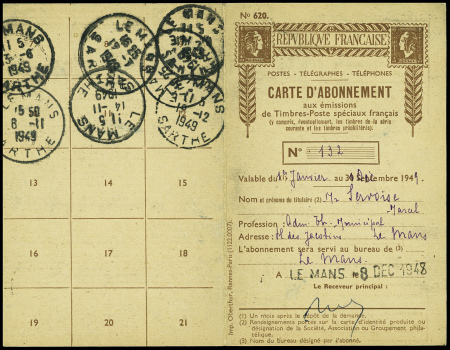 LE MANS
SARTHE
1949
LE MANS
SARTHE
1949
LE MANS
SARTHE
1949
LE MANS
15 50
8 - 11
1949
SARTHE
LE MANS
11 5
14 - 11
1949
SARTHE
-12
1949
SARTHE
13 14 15
16 17 18
19 20 21
Imp. Oberthur, Rennes-Paris
N° 620.
RÉPUBLIQUE FRANÇAISE
POSTES - TÉLÉGRAPHES - TÉLÉPHONES
CARTE D'ABONNEMENT
aux émissions
de Timbres-Poste spéciaux français
(y compris, éventuellement, les timbres de la série
courante et les timbres préoblitérés).
N° 132
Valable du 1er Janvier au 30 Dec 1949.
Nom et prénoms du titulaire (2) Mr Servoise
Profession : Adm. Th. Municipal
Adresse : Pl. des Jacobins Le Mans
L'abonnement sera servi au bureau de (3)
Le Mans.
A LE MANS le 8 DEC 1948
Le Receveur principal :
(1) Un mois après le dépôt de la demande.
(2) Renseignements portés sur la carte d'identité produite ou
désignation de la Société, Association ou Groupement philatélique.
(3) Nom du bureau désigné par l'abonné.